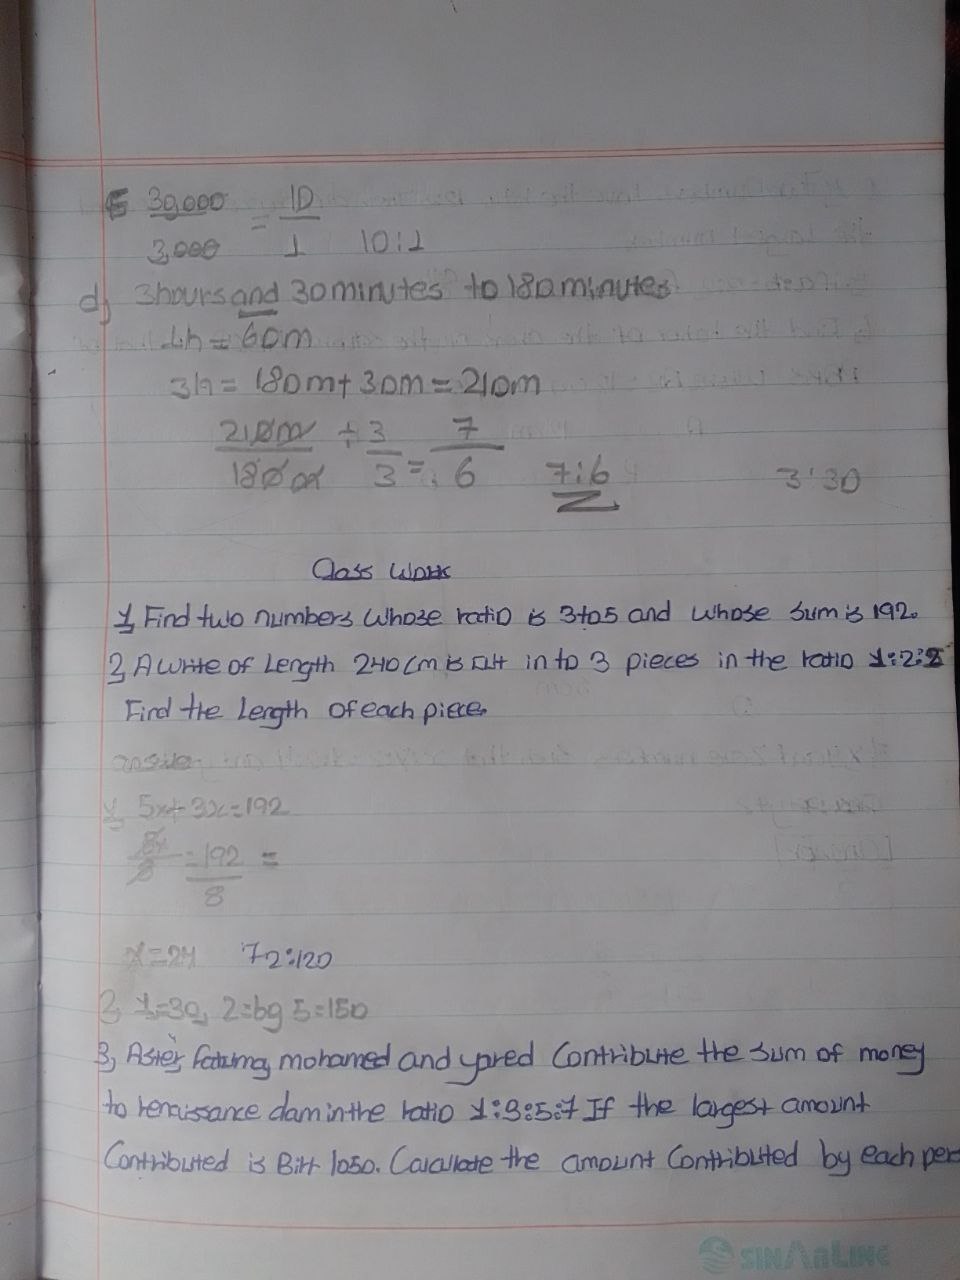 30,000 = 10
3,000 1 10:1
d, 3hours and 30minutes to 180minutes
1h = 60m
3h = 180m + 30m = 210m
210m ÷ 3 = 7
180m 3 6 7:6 3'30
Class Work
1, Find two numbers whose ratio is 3to5 and whose sum is 192.
2, A write of Length 240cm is cut in to 3 pieces in the ratio 1:2:
Find the Length of each piece.
answer
1, 5x+3x=192
8x = 192 =
8 8
x=24 72:120
2, 1=30, 2=60 5=150
3, Aster, Fatuma, mohamed and yared Contribute the sum of money
to renaissance dam in the ratio 1:3:5:7 If the largest amount
Contributed is Birr 1050. Calculate the amount Contributed by each per
SINARLINE